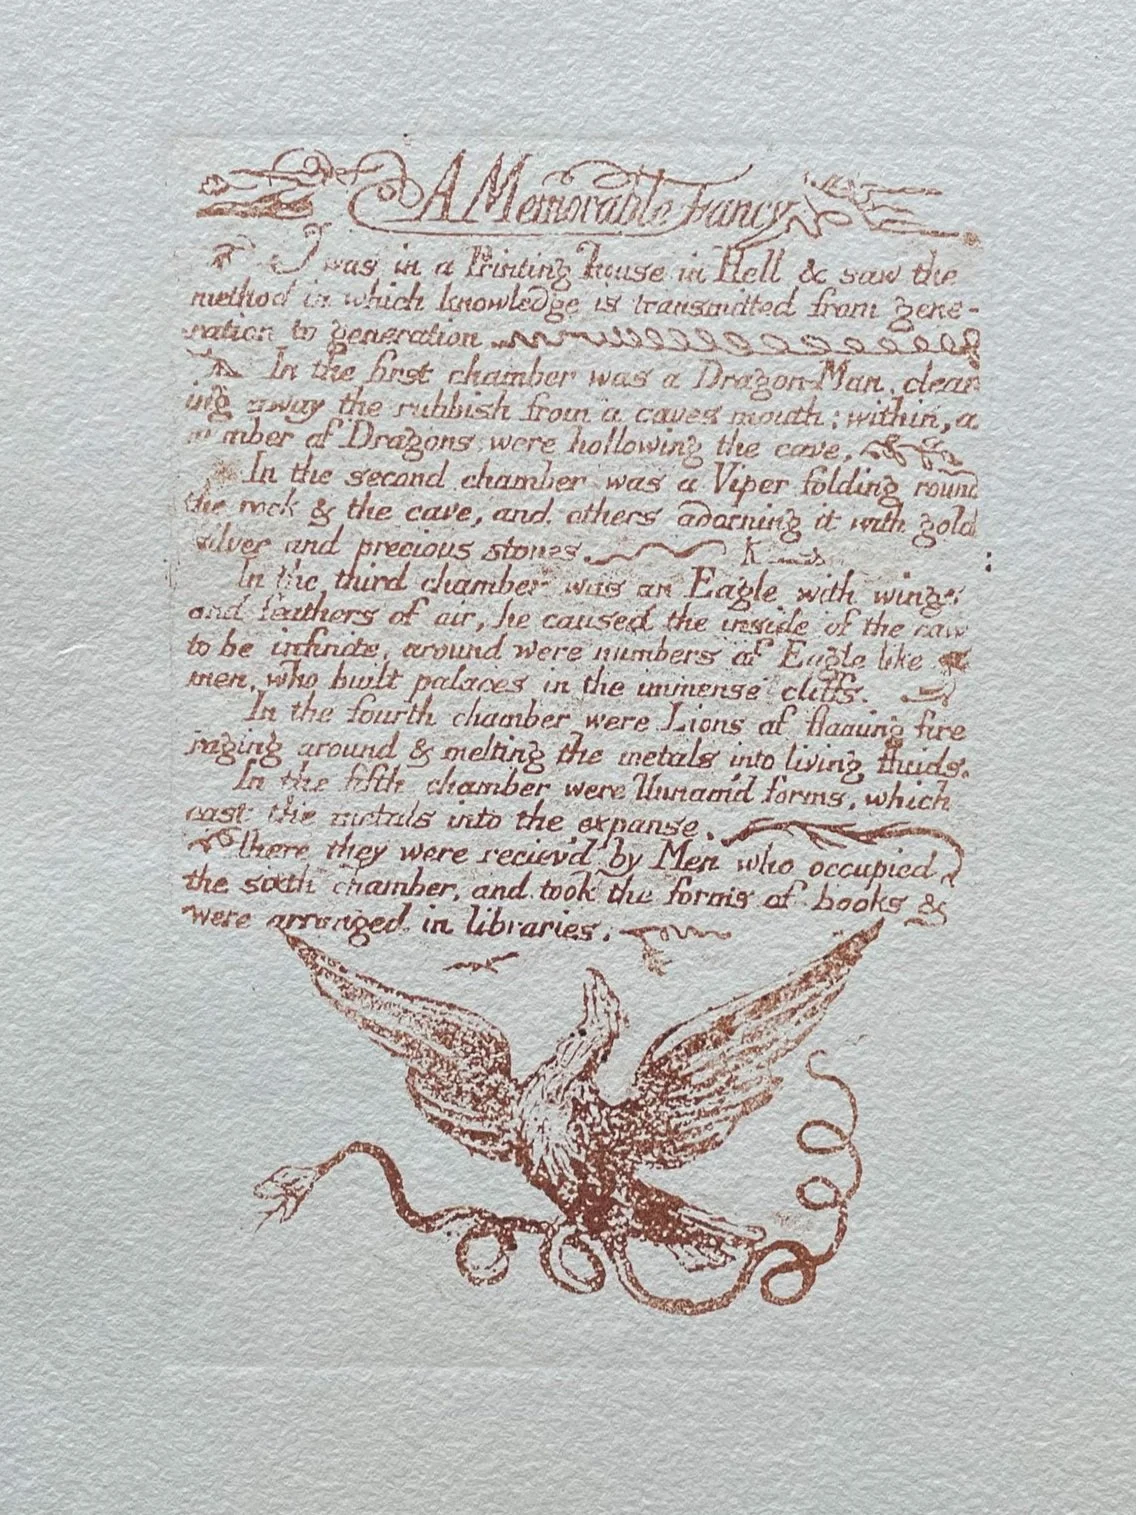 A Memorable Fancy
I was in a Printing house in Hell & saw the
method in which knowledge is transmitted from gene-
ration to generation
In the first chamber was a Dragon-Man, clear
ing away the rubbish from a caves mouth; within, a
number of Dragons were hollowing the cave,
In the second chamber was a Viper folding round
the rock & the cave, and others adorning it with gold
silver and precious stones.
In the third chamber was an Eagle with wings
and feathers of air, he caused the inside of the cave
to be infinite, around were numbers of Eagle like
men, who built palaces in the immense cliffs.
In the fourth chamber were Lions of flaming fire
raging around & melting the metals into living fluids.
In the fifth chamber were Unnam'd forms, which
cast the metals into the expanse.
There they were reciev'd by Men who occupied
the sixth chamber, and took the forms of books &
were arranged in libraries.